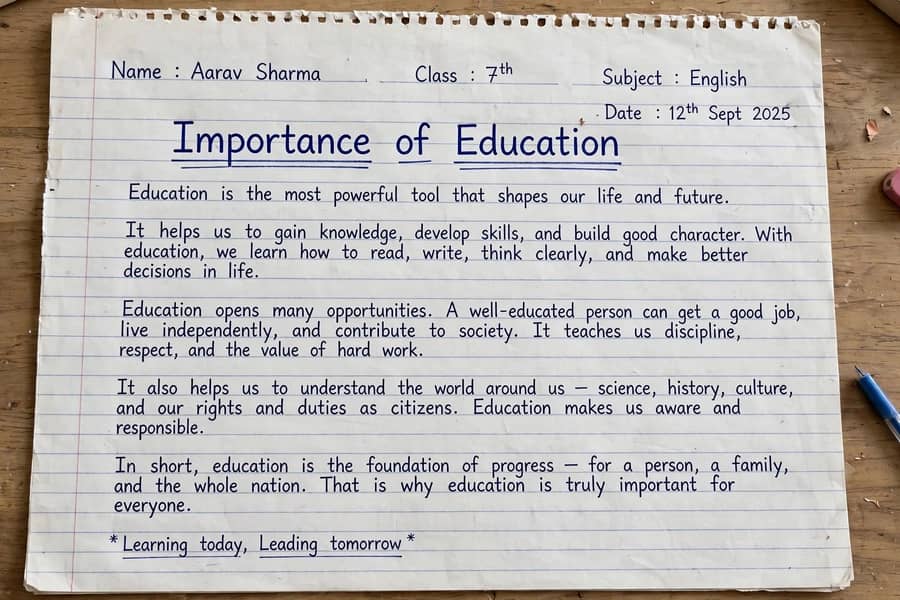 Name : Aarav Sharma Class : 7th Subject : English
Date : 12th Sept 2025
Importance of Education
Education is the most powerful tool that shapes our life and future.
It helps us to gain knowledge, develop skills, and build good character. With
education, we learn how to read, write, think clearly, and make better
decisions in life.
Education opens many opportunities. A well-educated person can get a good job,
live independently, and contribute to society. It teaches us discipline,
respect, and the value of hard work.
It also helps us to understand the world around us – science, history, culture,
and our rights and duties as citizens. Education makes us aware and
responsible.
In short, education is the foundation of progress – for a person, a family,
and the whole nation. That is why education is truly important for
everyone.
* Learning today, Leading tomorrow *